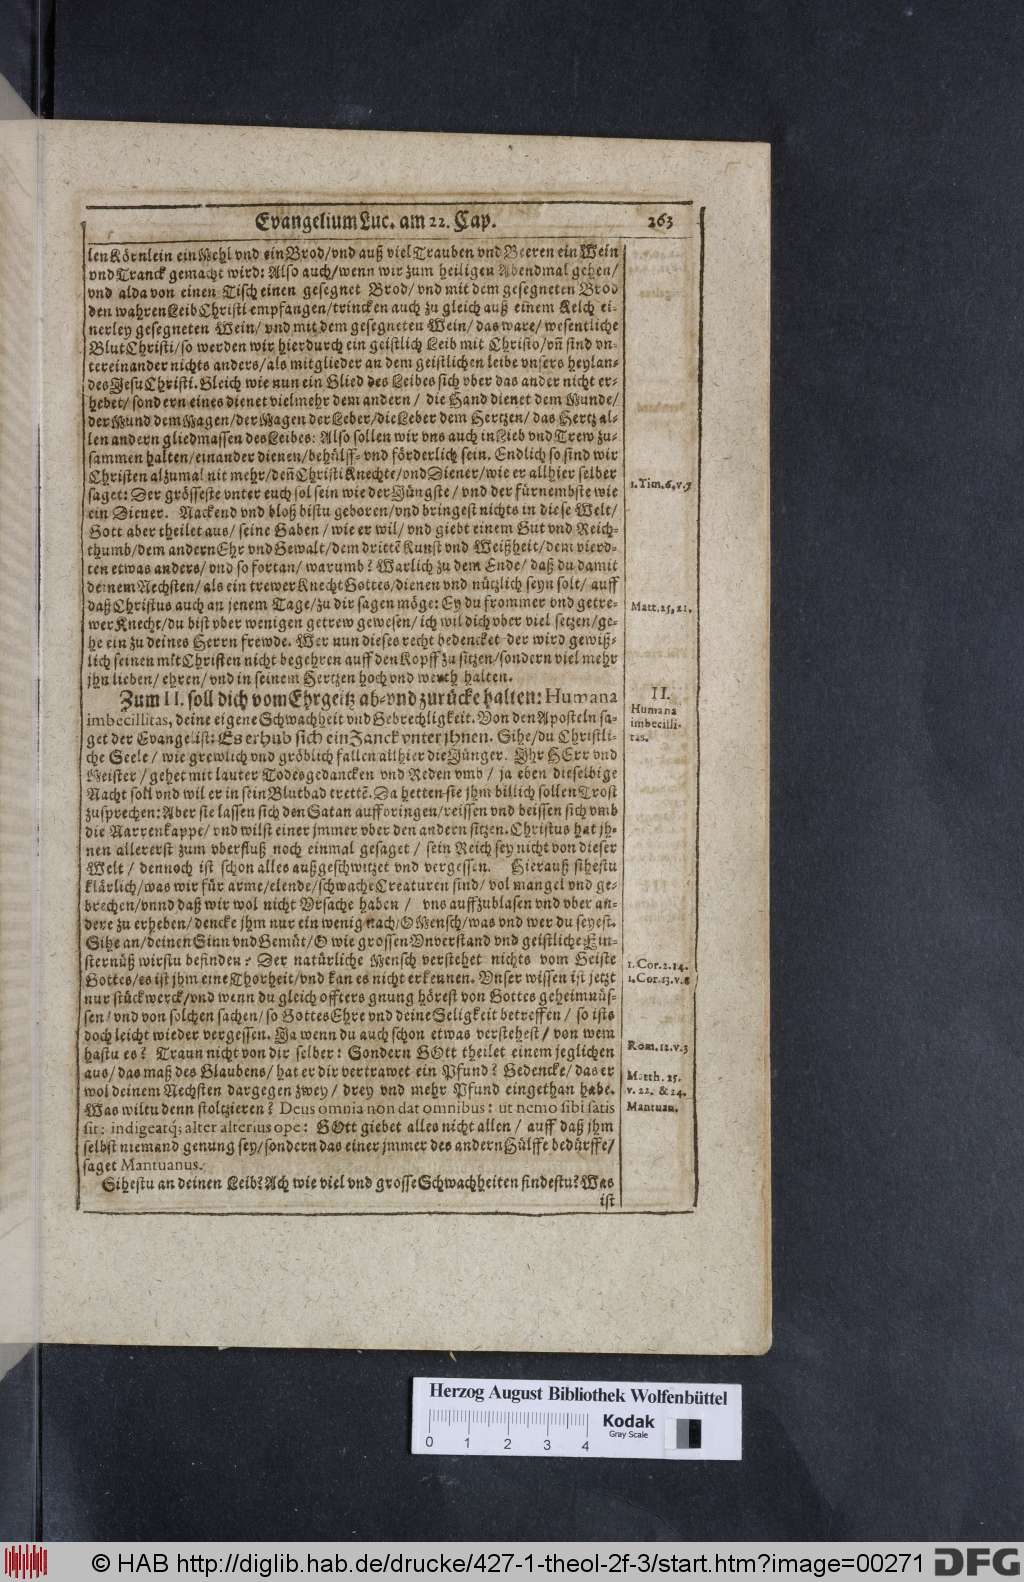 Evangelium Luc. am 22. Cap. 263
len Körnlein ein Mehl vnd ein Brod/vnd auß viel Trauben vnd Beeren ein Wein
vnd Tranck gemacht wird: Also auch/wenn wir zum heiligen Abendmal gehen/
vnd alda von einen Tisch einen gesegnet Brod/ vnd mit dem gesegneten Brod
den wahren Leib Christi empfangen/trincken auch zu gleich auß einem Kelch ei-
nerley gesegneten Wein/ vnd mit dem gesegneten Wein/ das ware/ wesentliche
Blut Christi/so werden wir hierdurch ein geistlich Leib mit Christo/vñ sind vn-
tereinander nichts anders/als mitglieder an dem geistlichen leibe vnsers heylan-
des Jesu Christi. Gleich wie nun ein Glied des Leibes sich vber das ander nicht er-
hebet/ sondern eines dienet vielmehr dem andern/ die Hand dienet dem Munde/
der Mund dem Magen/der Magen der Leber/die Leber dem Hertzen/ das Hertz al-
len andern gliedmassen des Leibes: Also sollen wir vns auch in Lieb vnd Trew zu-
sammen halten/einander dienen/behülff- vnd förderlich sein. Endlich so sind wir
Christen alzumal nit mehr/deñ Christi Knechte/vnd Diener/wie er allhier selber
saget: Der grösseste vnter euch sol sein wie der Jüngste/ vnd der fürnembste wie
1. Tim. 6. v. 7
ein Diener. Nackend vnd bloß bistu geboren/vnd bringest nichts in diese Welt/
Gott aber theilet aus/ seine Gaben/ wie er wil/ vnd giebt einem Gut vnd Reich-
thumb/dem andern Ehr vnd Gewalt/dem drittē Kunst vnd Weißheit/dem vierd-
ten etwas anders/ vnd so fortan/ warumb? Warlich zu dem Ende/ daß du damit
deinem Nechsten/ als ein trewer Knecht Gottes/dienen vnd nützlich seyn solt/ auff
daß Christus auch an jenem Tage/zu dir sagen möge: Ey du frommer vnd getre-
Matt. 25, 21.
wer Knecht/du bist vber wenigen getrew gewesen/ ich wil dich vber viel setzen/ge-
he ein zu deines Herrn frewde. Wer nun dieses recht bedencket der wird gewiß-
lich seinen mit Christen nicht begehren auff den Kopff zu sitzen/sondern viel mehr
jhn lieben/ ehren/ vnd in seinem Hertzen hoch vnd werth halten.
Zum II. soll dich vom Ehrgeitz ab- vnd zurücke halten: Humana
II.
Humana
imbecilli-
tas.
imbecillitas, deine eigene Schwachheit vnd Gebrechligkeit. Von den Aposteln sa-
get der Evangelist: Es erhub sich ein Zanck vnter jhnen. Sihe/du Christli-
che Seele/ wie grewlich vnd gröblich fallen allhier die Jünger. Jhr HErr vnd
Meister/ gehet mit lauter Todesgedancken vnd Reden vmb/ ja eben dieselbige
Nacht soll vnd wil er in sein Blutbad trettē. Da hetten sie jhm billich sollen Trost
zusprechen: Aber sie lassen sich den Satan auffbringen/reissen vnd beissen sich vmb
die Narrenkappe/ vnd wilst einer jmmer vber den andern sitzen. Christus hat jh-
nen allererst zum vberfluß noch einmal gesaget/ sein Reich sey nicht von dieser
Welt/ dennoch ist schon alles außgeschwitzet vnd vergessen. Hierauß sihestu
klärlich/was wir für arme/elende/schwache Creaturen sind/ vol mangel vnd ge-
brechen/vnnd daß wir wol nicht Vrsache haben/ vns auffzublasen vnd vber an-
dere zu erheben/ dencke jhm nur ein wenig nach/O Mensch/was vnd wer du seyest.
Sihe an/deinen Sinn vnd Gemüt/O wie grossen Vnverstand vnd geistliche Fin-
sternüß wirstu befinden? Der natürliche Mensch verstehet nichts vom Geiste
1. Cor. 2. 14.
Gottes/es ist jhm eine Thorheit/vnd kan es nicht erkennen. Vnser wissen ist jetzt
1. Cor. 13. v. 8
nur stückwerck/vnd wenn du gleich offters gnung hörest von Gottes geheimnüs-
sen/ vnd von solchen sachen/ so Gottes Ehre vnd deine Seligkeit betreffen/ so ists
doch leicht wieder vergessen. Ja wenn du auch schon etwas verstehest/ von wem
hastu es? Traun nicht von dir selber: Sondern GOtt theilet einem jeglichen
Rom. 12. v. 3
aus/das maß des Glaubens/ hat er dir vertrawet ein Pfund? Gedencke/das er
Matth. 25.
wol deinem Nechsten dargegen zwey/ drey vnd mehr Pfund eingethan habe.
v. 22. & 24.
Was wiltu denn stoltzieren? Deus omnia non dat omnibus: ut nemo sibi satis
Mantuan.
sit: indigeatq; alter alterius ope: GOtt giebet alles nicht allen/ auff daß jhm
selbst niemand genung sey/sondern das einer jmmer des andern Hülffe bedürffe/
saget Mantuanus.
Sihestu an deinen Leib? Ach wie viel vnd grosse Schwachheiten findestu? Was
ist
Herzog August Bibliothek Wolfenbüttel
0 1 2 3 4
Kodak
Gray Scale
© HAB http://diglib.hab.de/drucke/427-1-theol-2f-3/start.htm?image=00271
DFG